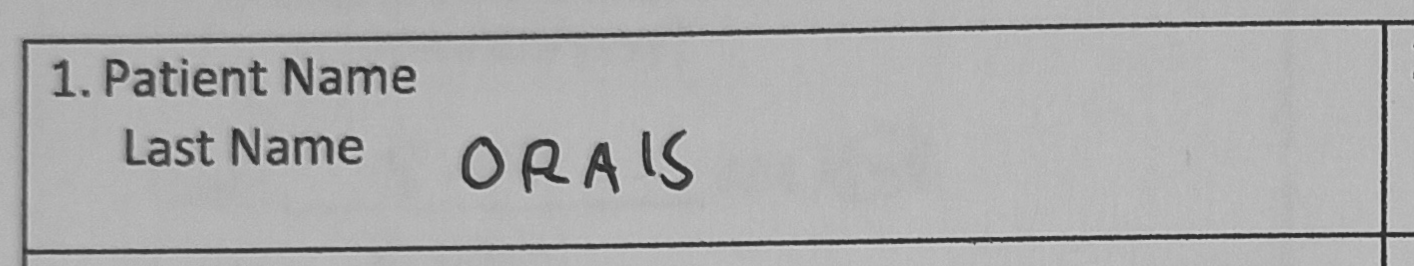 1. Patient Name
Last Name ORAIS